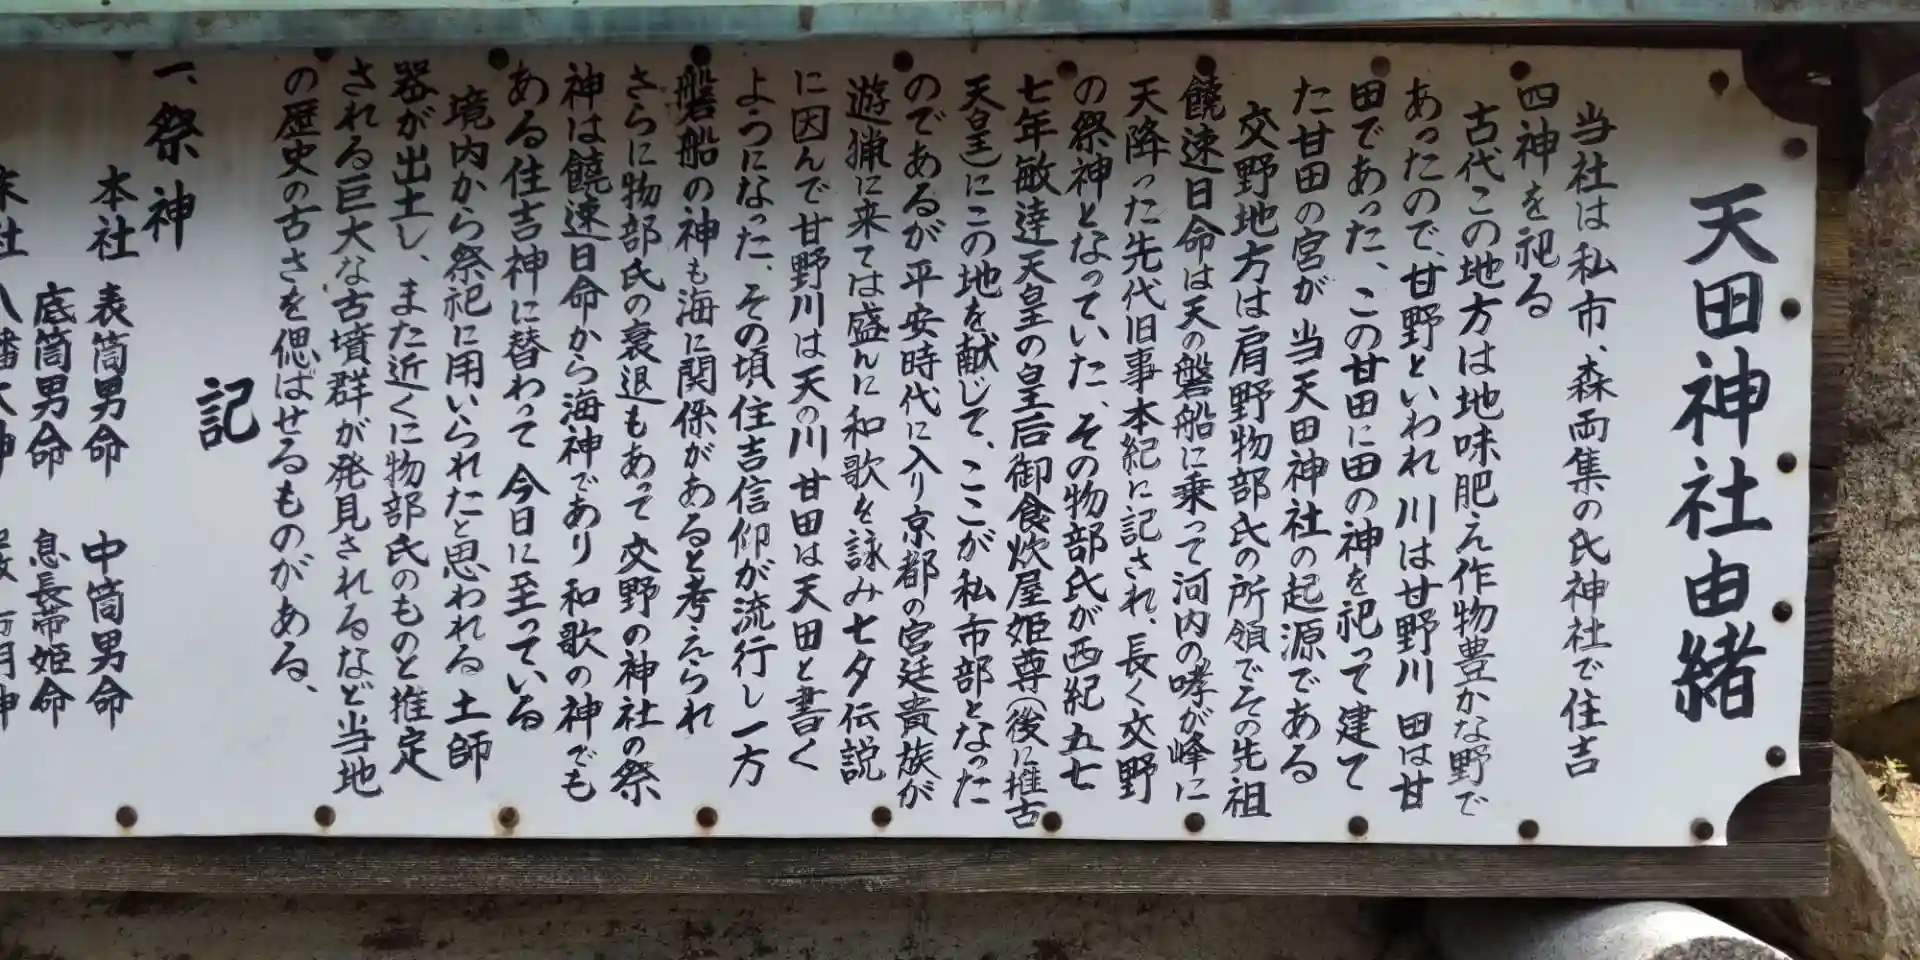 天田神社由緒
当社は私市、森両集の氏神社で住吉
四神を祀る
古代この地方は地味肥え作物豊かな野で
あったので、甘野といわれ川は甘野川 田は甘
田であった、この甘田に田の神を祀って建て
た甘田の宮が 当天田神社の起源である
交野地方は肩野物部氏の所領でその先祖
饒速日命は天の磐船に乗って河内の哮が峰に
天降った先代旧事本紀に記され、長く交野
の祭神となっていた、その物部氏が西紀五七
七年敏達天皇の皇后御食炊屋姫尊(後に推古
天皇)にこの地を献じて、ここが私市部となった
のであるが平安時代に入り京都の宮廷貴族が
遊猟に来ては盛んに和歌を詠み七夕伝説
に因んで甘野川は天の川 甘田は天田と書く
ようになった、その頃住吉信仰が流行し一方
磐船の神も海に関係があると考えられ
さらに物部氏の衰退もあって交野の神社の祭
神は饒速日命から海神であり 和歌の神でも
ある住吉神に替わって今日に至っている
境内から祭祀に用いられたと思われる土師
器が出土し、また近くに物部氏のものと推定
される巨大な古墳群が発見されるなど当地
の歴史の古さを偲ばせるものがある、
記
一、祭神
本社 表筒男命 中筒男命
底筒男命 息長帯姫命
末社 八幡大神